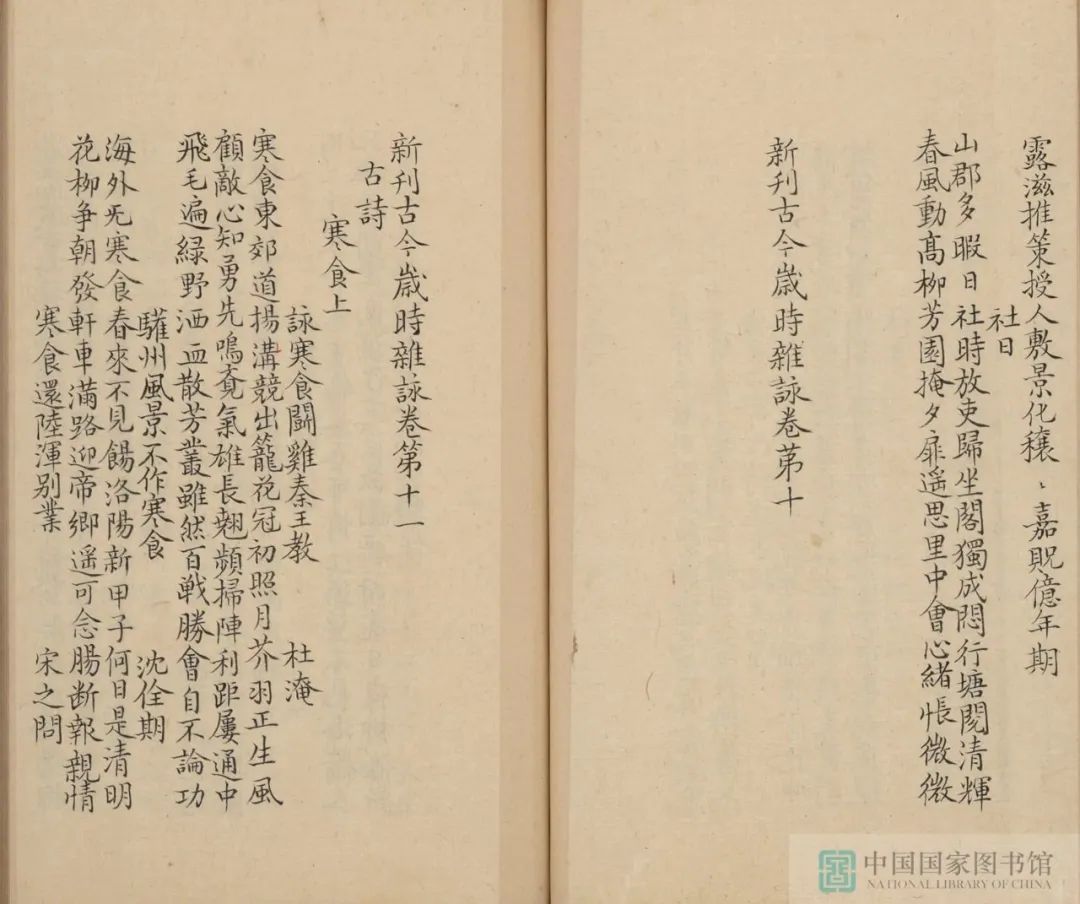 露滋推策授人敷景化穰〻嘉貺億年期
社日
山郡多暇日社時放吏歸坐閣獨成悶行塘閱清輝
春風動高柳芳園掩夕扉遥思里中會心緒悵微微
新刊古今歲時雜詠卷苐十
新刊古今歲時雜詠卷第十一
古詩
寒食上
詠寒食鬬雞秦王教 杜淹
寒食東郊道揚溝競出籠花冠初照月芥羽正生風
顧敵心知勇先鳴覺氣雄長翹頻掃陣利距屢通中
飛毛遍緑野洒血散芳叢雖然百戰勝會自不論功
驩州風景不作寒食 沈佺期
海外无寒食春來不見餳洛陽新甲子何日是清明
花柳争朝發軒車滿路迎帝鄉遥可念腸断報親情
寒食還陸渾别業 宋之問
中国国家图书馆
NATIONAL LIBRARY OF CHINA